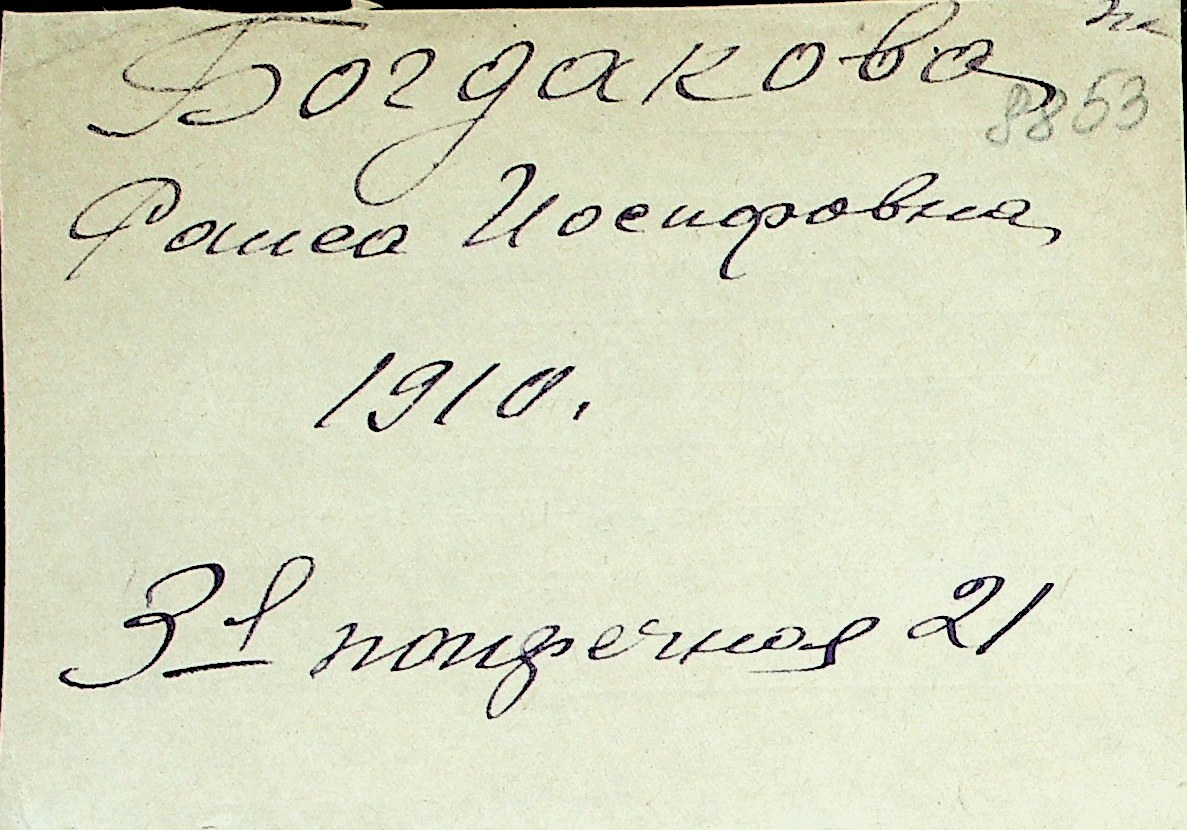 Богдакова
8853
Раиса Иосифовна
1910.
3я поперечная 21